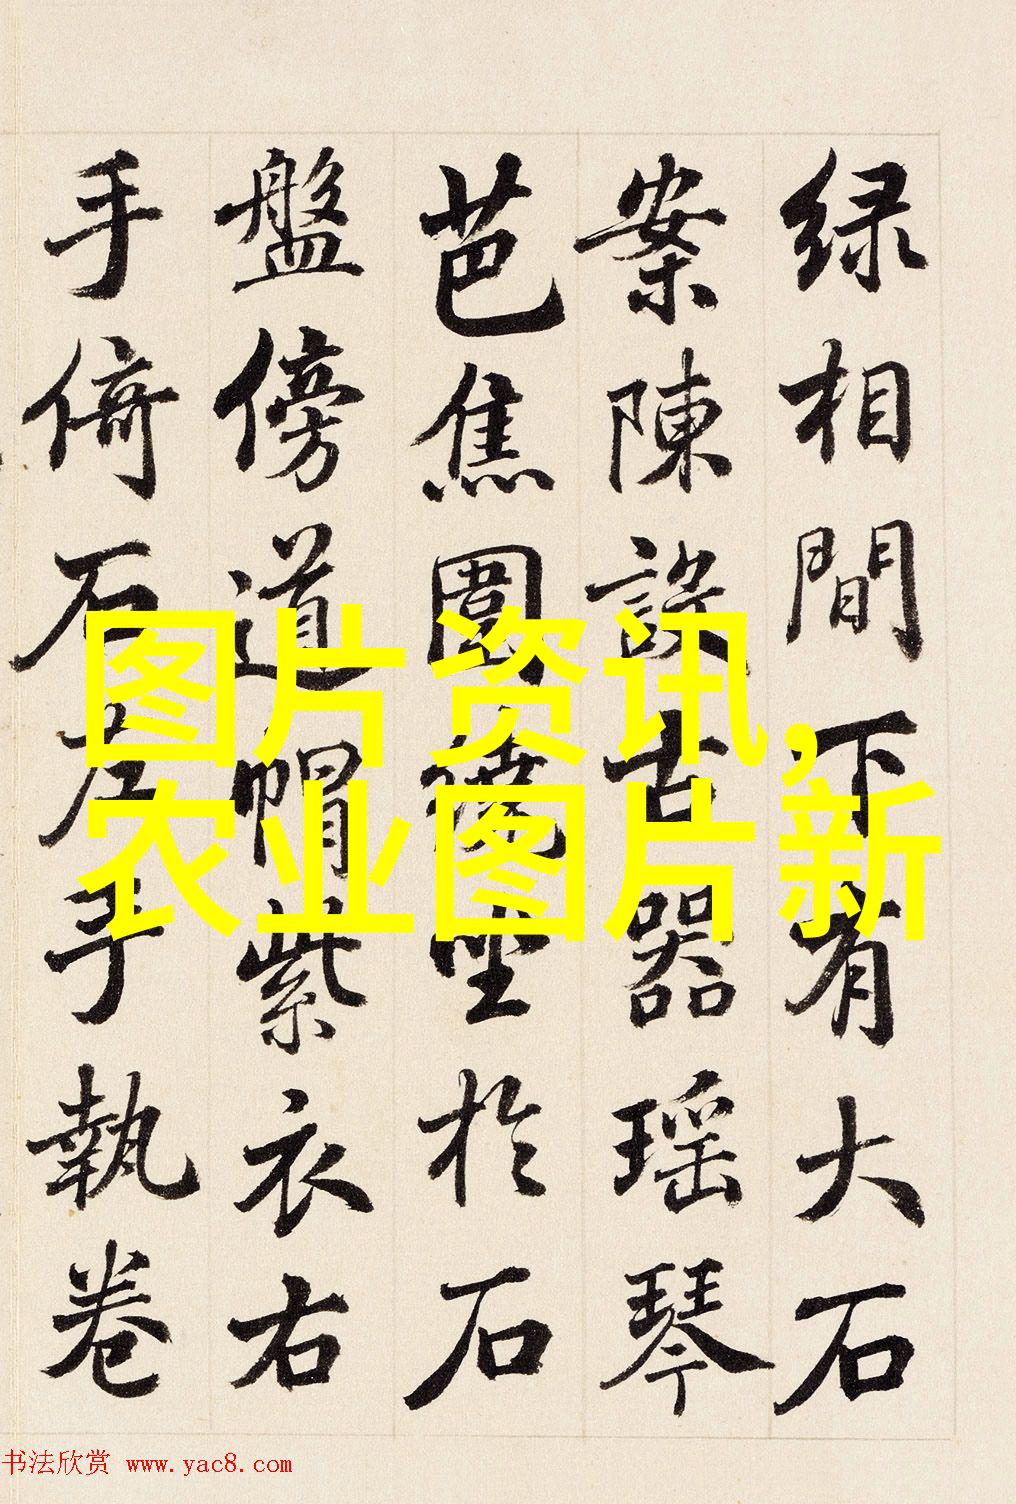 绿相間下有大石
案陳設古器瑶琴
芭焦圍繞坐於石
盤傍道帽紫衣右
手倚石左手執卷
图片资讯,
农业图片新
书法欣赏 www.yac8.com